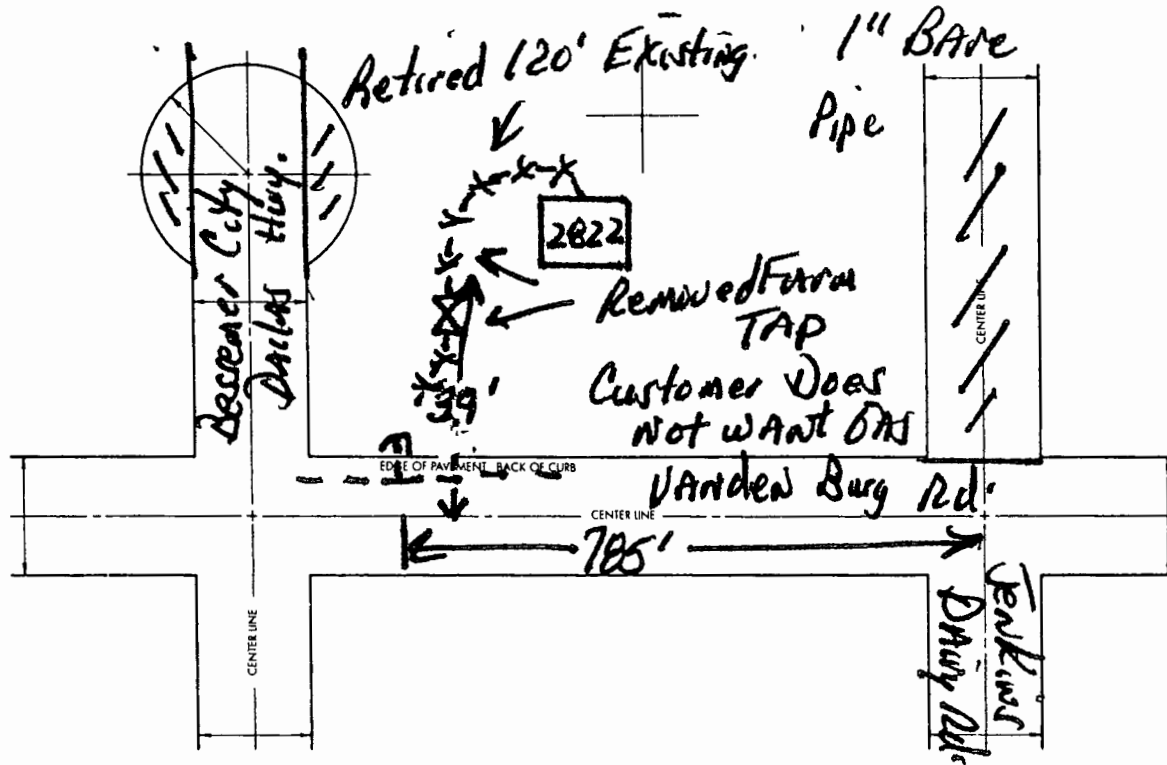 Retired 120' Existing. 1" BAre
Pipe
Bessemer City
DAllas Hwy.
2822
Removed Farm
TAP
Customer Does
Not WANT GAS
39'
EDGE OF PAVEMENT BACK OF CURB
VANden Burg Rd.
CENTER LINE
785'
CENTER LINE
CENTER LINE
Jenkins
DAiry Rd.